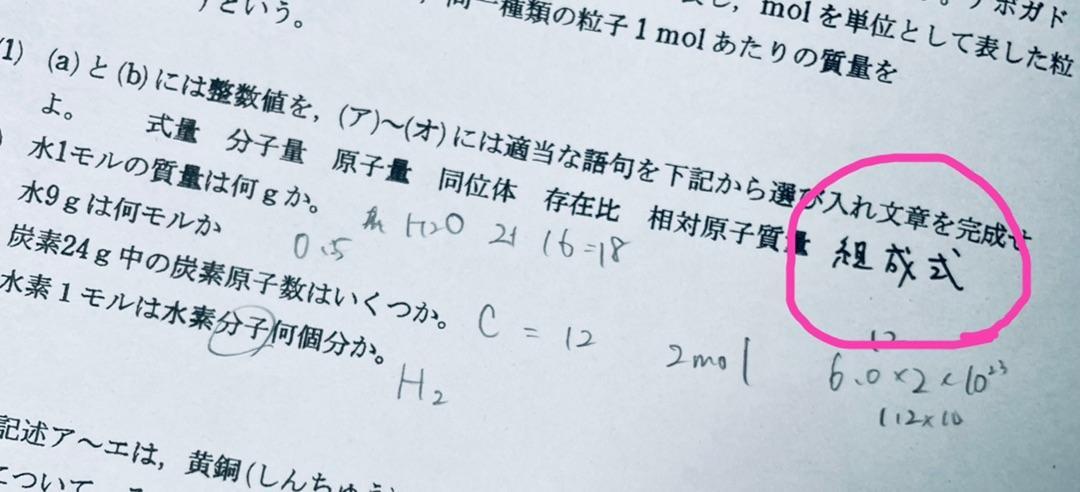 mol を単位として表した粒
同一種類の粒子1 mol あたりの質量を
という。
(1) (a)と(b)には整数値を，(ア)～(オ)には適当な語句を下記から選び入れ文章を完成せ
よ。 式量 分子量 原子量 同位体 存在比 相対原子質量 組成式
水1モルの質量は何gか。 H2O 2+ 16=18
水9gは何モルか 0.5
炭素24g中の炭素原子数はいくつか。 C = 12 2mol 6.0×2×10²³
水素1モルは水素分子何個分か。 H2
記述ア～エは，黄銅(しんちゅう)
について